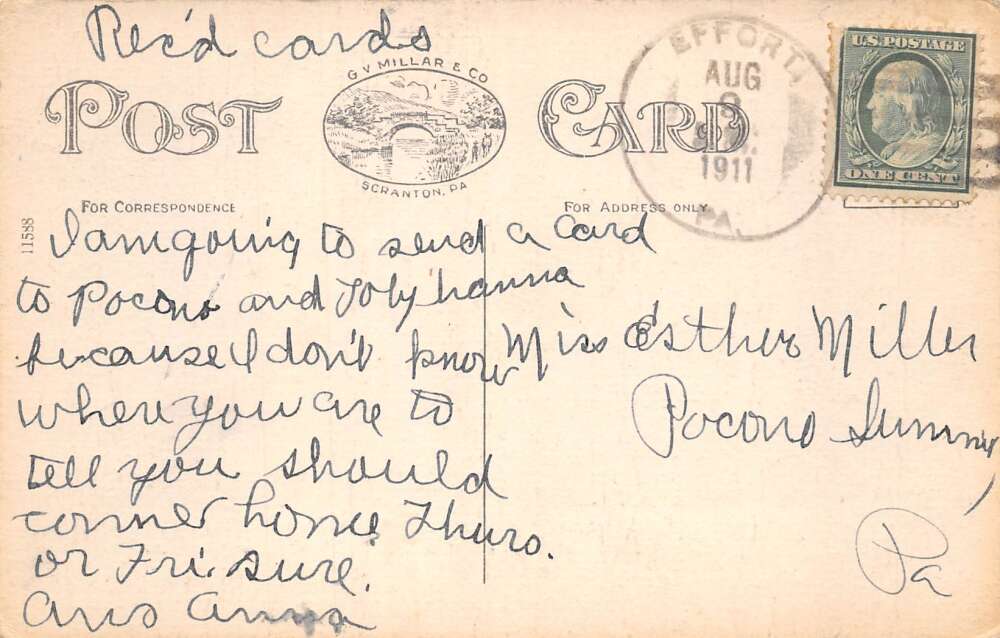 Rec'd cards
G V MILLAR & CO
POST CARD
SCRANTON, PA
EFFORT,
AUG
9
1911
PA.
U.S. POSTAGE
ONE CENT
FOR CORRESPONDENCE
FOR ADDRESS ONLY
11588
I am going to send a card
to Pocono and Tobyhanna
because I don't know
where you are to
tell you should
come home Thurs.
or Fri. sure.
Ans Anna
Miss Esther Miller
Pocono Summit
Pa